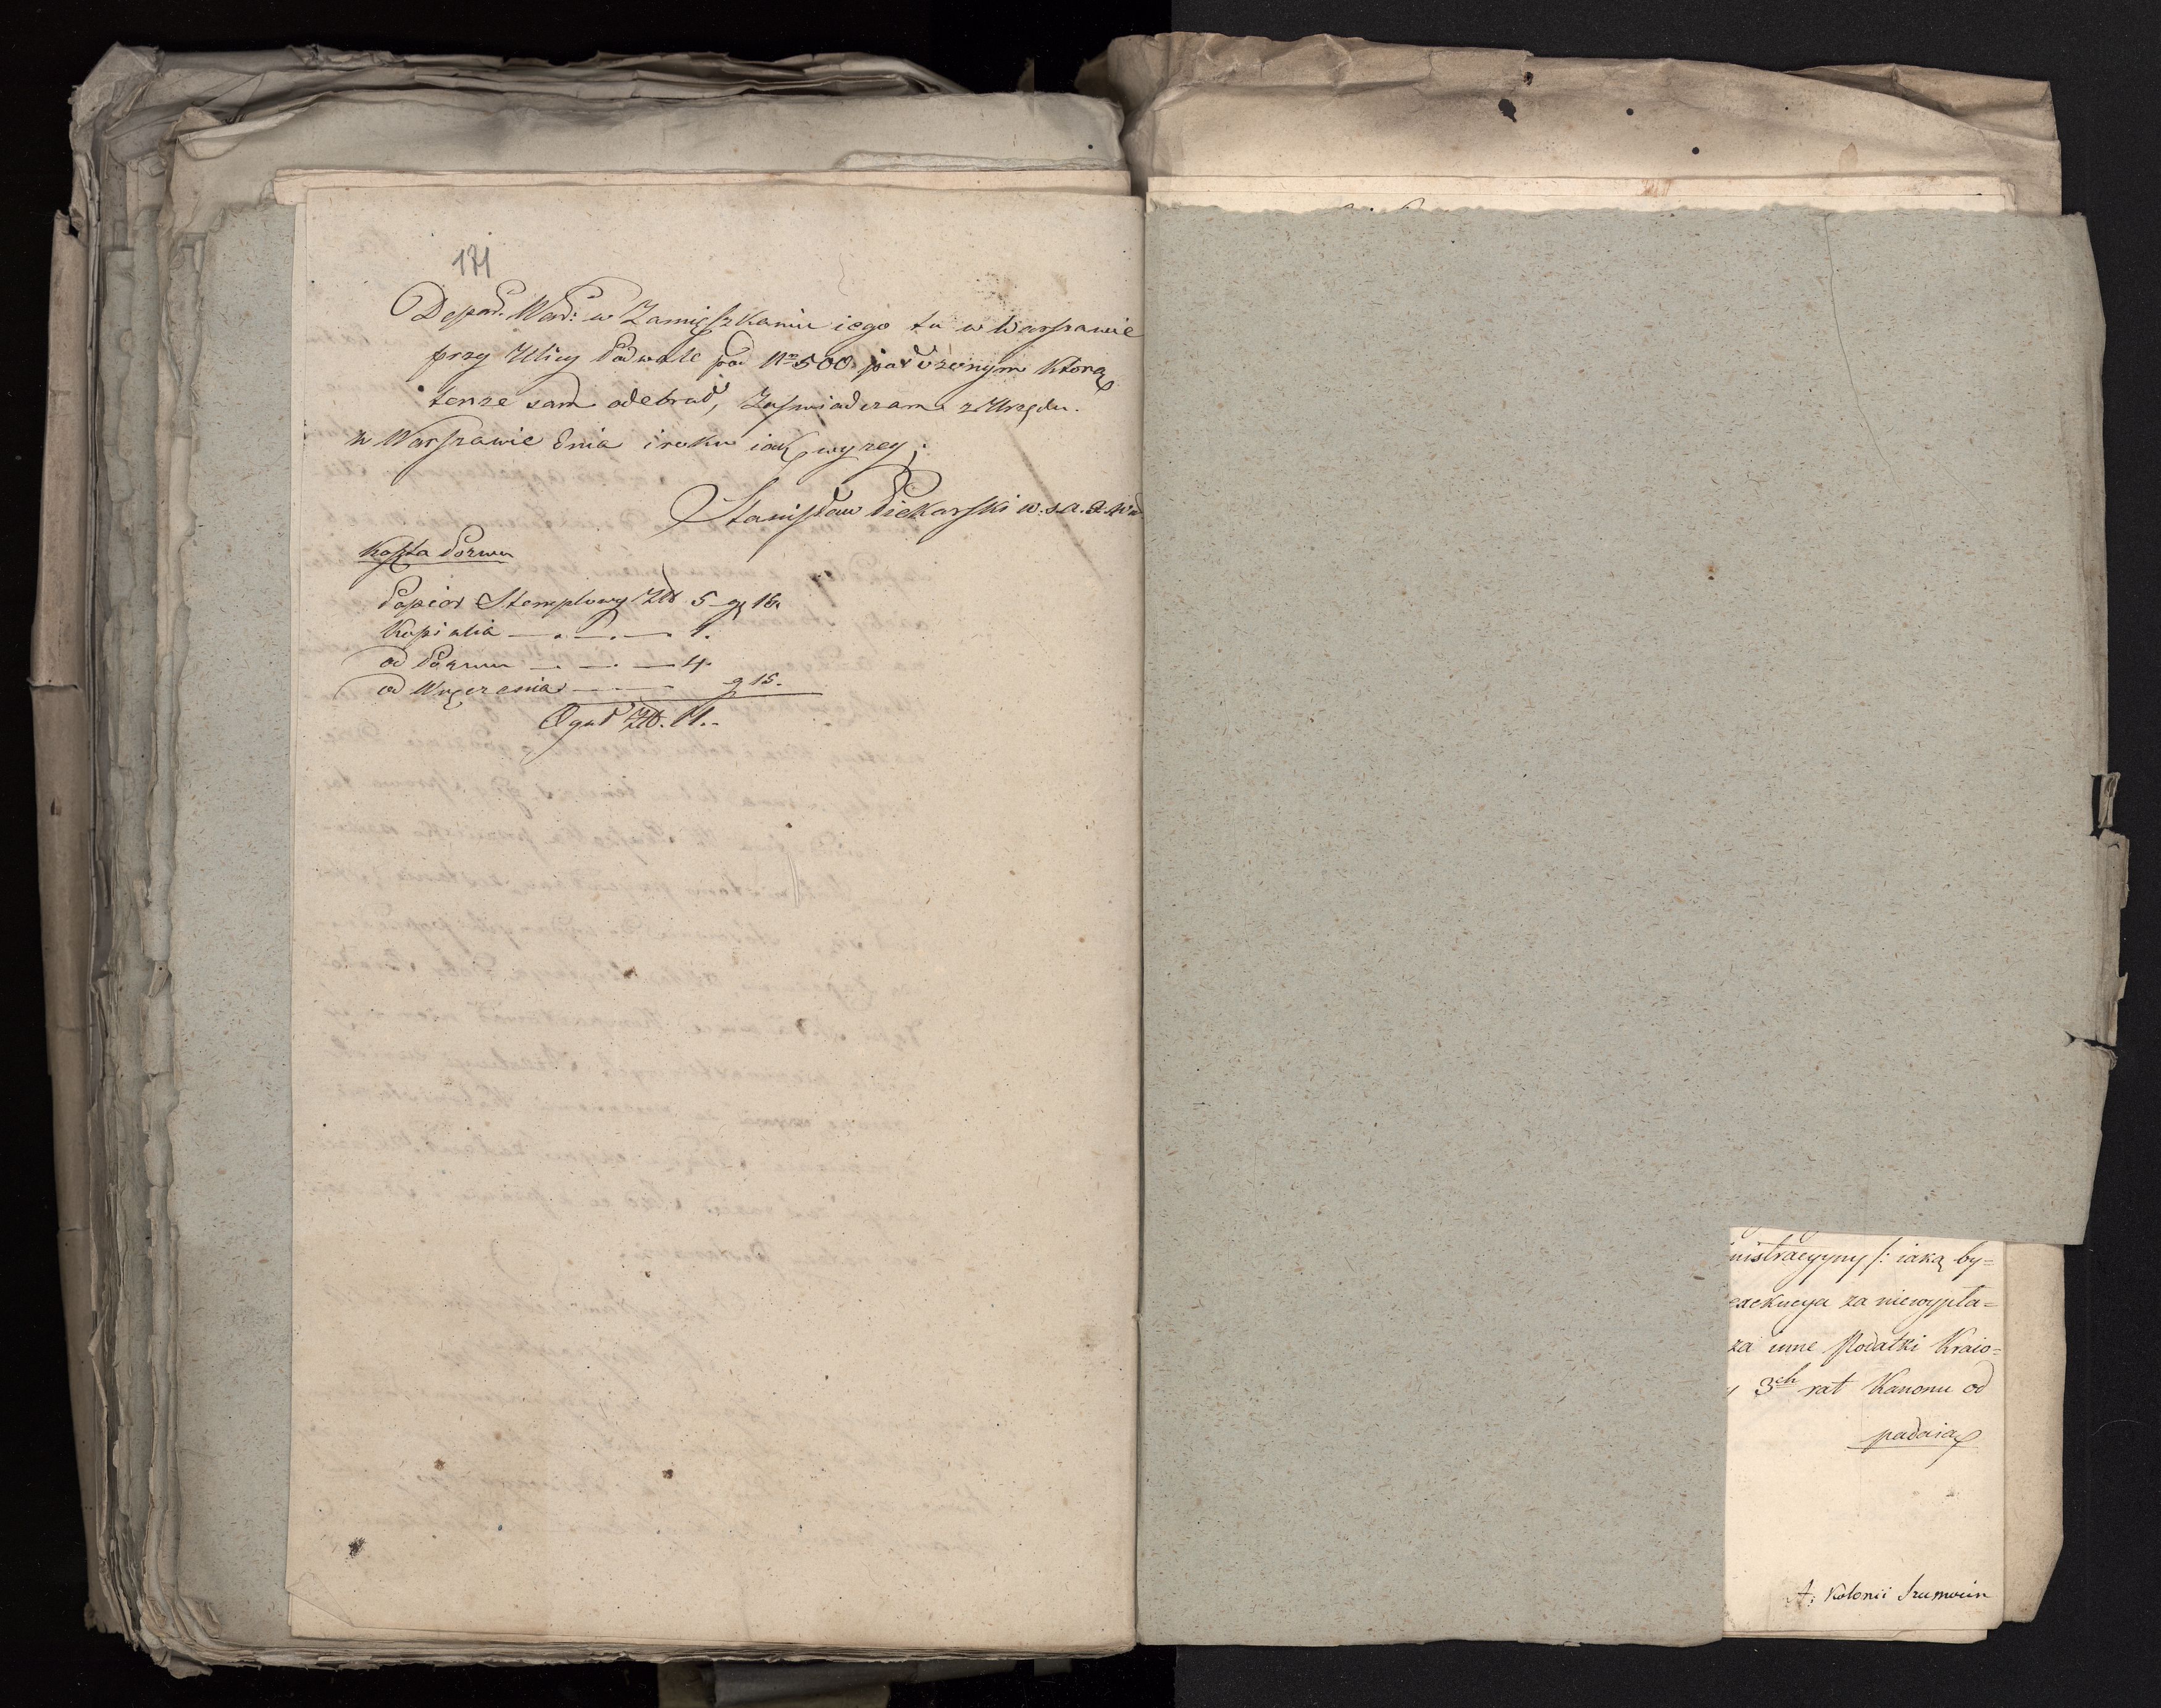 171
Depar. Wad: w Zamięszkaniu iego tu w Warszawie
przy Ulicy Podwale pod Nro 500 położonym którą
tenże sam odebrał, Zaświadczam z Urzędu.
w Warszawie dnia i roku iak wyżey;
Stanisław Piekarski w. s. A.
Koszta Pozwu
Papier Stemplowy Złł 5 gr 15.
Kopialia — . — . — 1.
od Pozwu — . — . — 4.
od Wręczenia — — g 15.
Oguł Złł. 11.-
nistracyyny /: iaką by=
exekucya za niewypła=
za inne Podatki Kraio=
3ch rat Kanonu od
padaią
A: Kolonii Szumowin